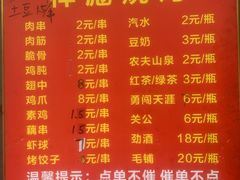 土豆 15串
肉串 2元/串
汽水 2元/瓶
肉筋 2元/串
豆奶 3元/瓶
脆骨 2元/串
农夫山泉 2元/瓶
鸡肫 2元/串
红茶/绿茶 3元/瓶
翅中 8元/串
勇闯天涯 6元/瓶
鸡爪 8元/串
关公 6元/瓶
素鸡 1.5元/串
劲酒 18元/瓶
藕串 1.5元/串
毛铺 20元/瓶
虾球 元/串
烤饺子 元/串
温馨提示：点单不催 催单不点